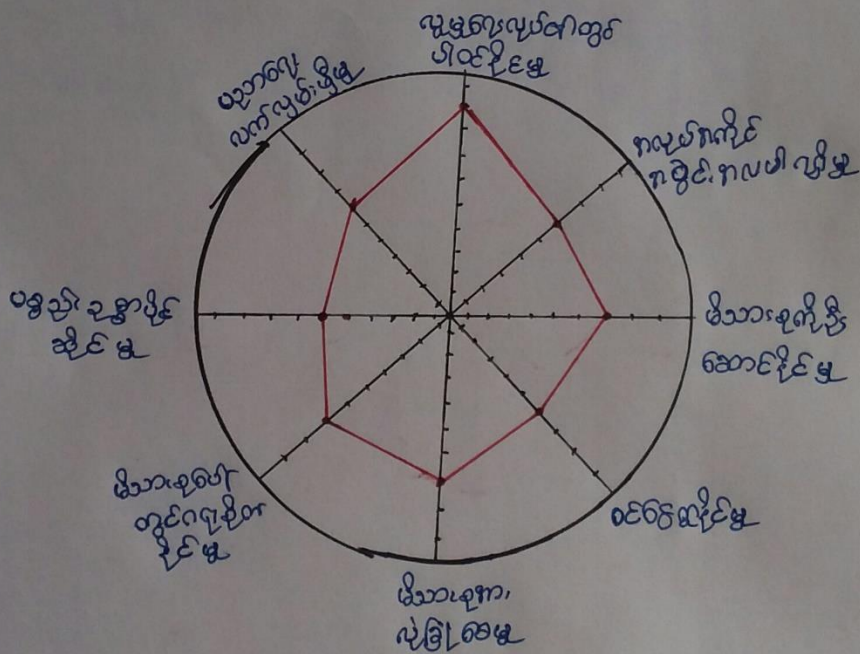 လူမှုရေးလုပ်ငန်းတွင်
ပါဝင်နိုင်မှု
အလုပ်အကိုင်
အခွင့်အလမ်း ရရှိမှု
မိသားစုကို ဦး
ဆောင်နိုင်မှု
ဝင်ငွေရနိုင်မှု
မိသားစုအား
လုံခြုံစေမှု
မိသားစုပေါ်
တွင်ဂရုစိုက်
နိုင်မှု
ပစ္စည်းဥစ္စာပိုင်
ဆိုင်မှု
ပညာရေး
လက်လှမ်းမှီမှု